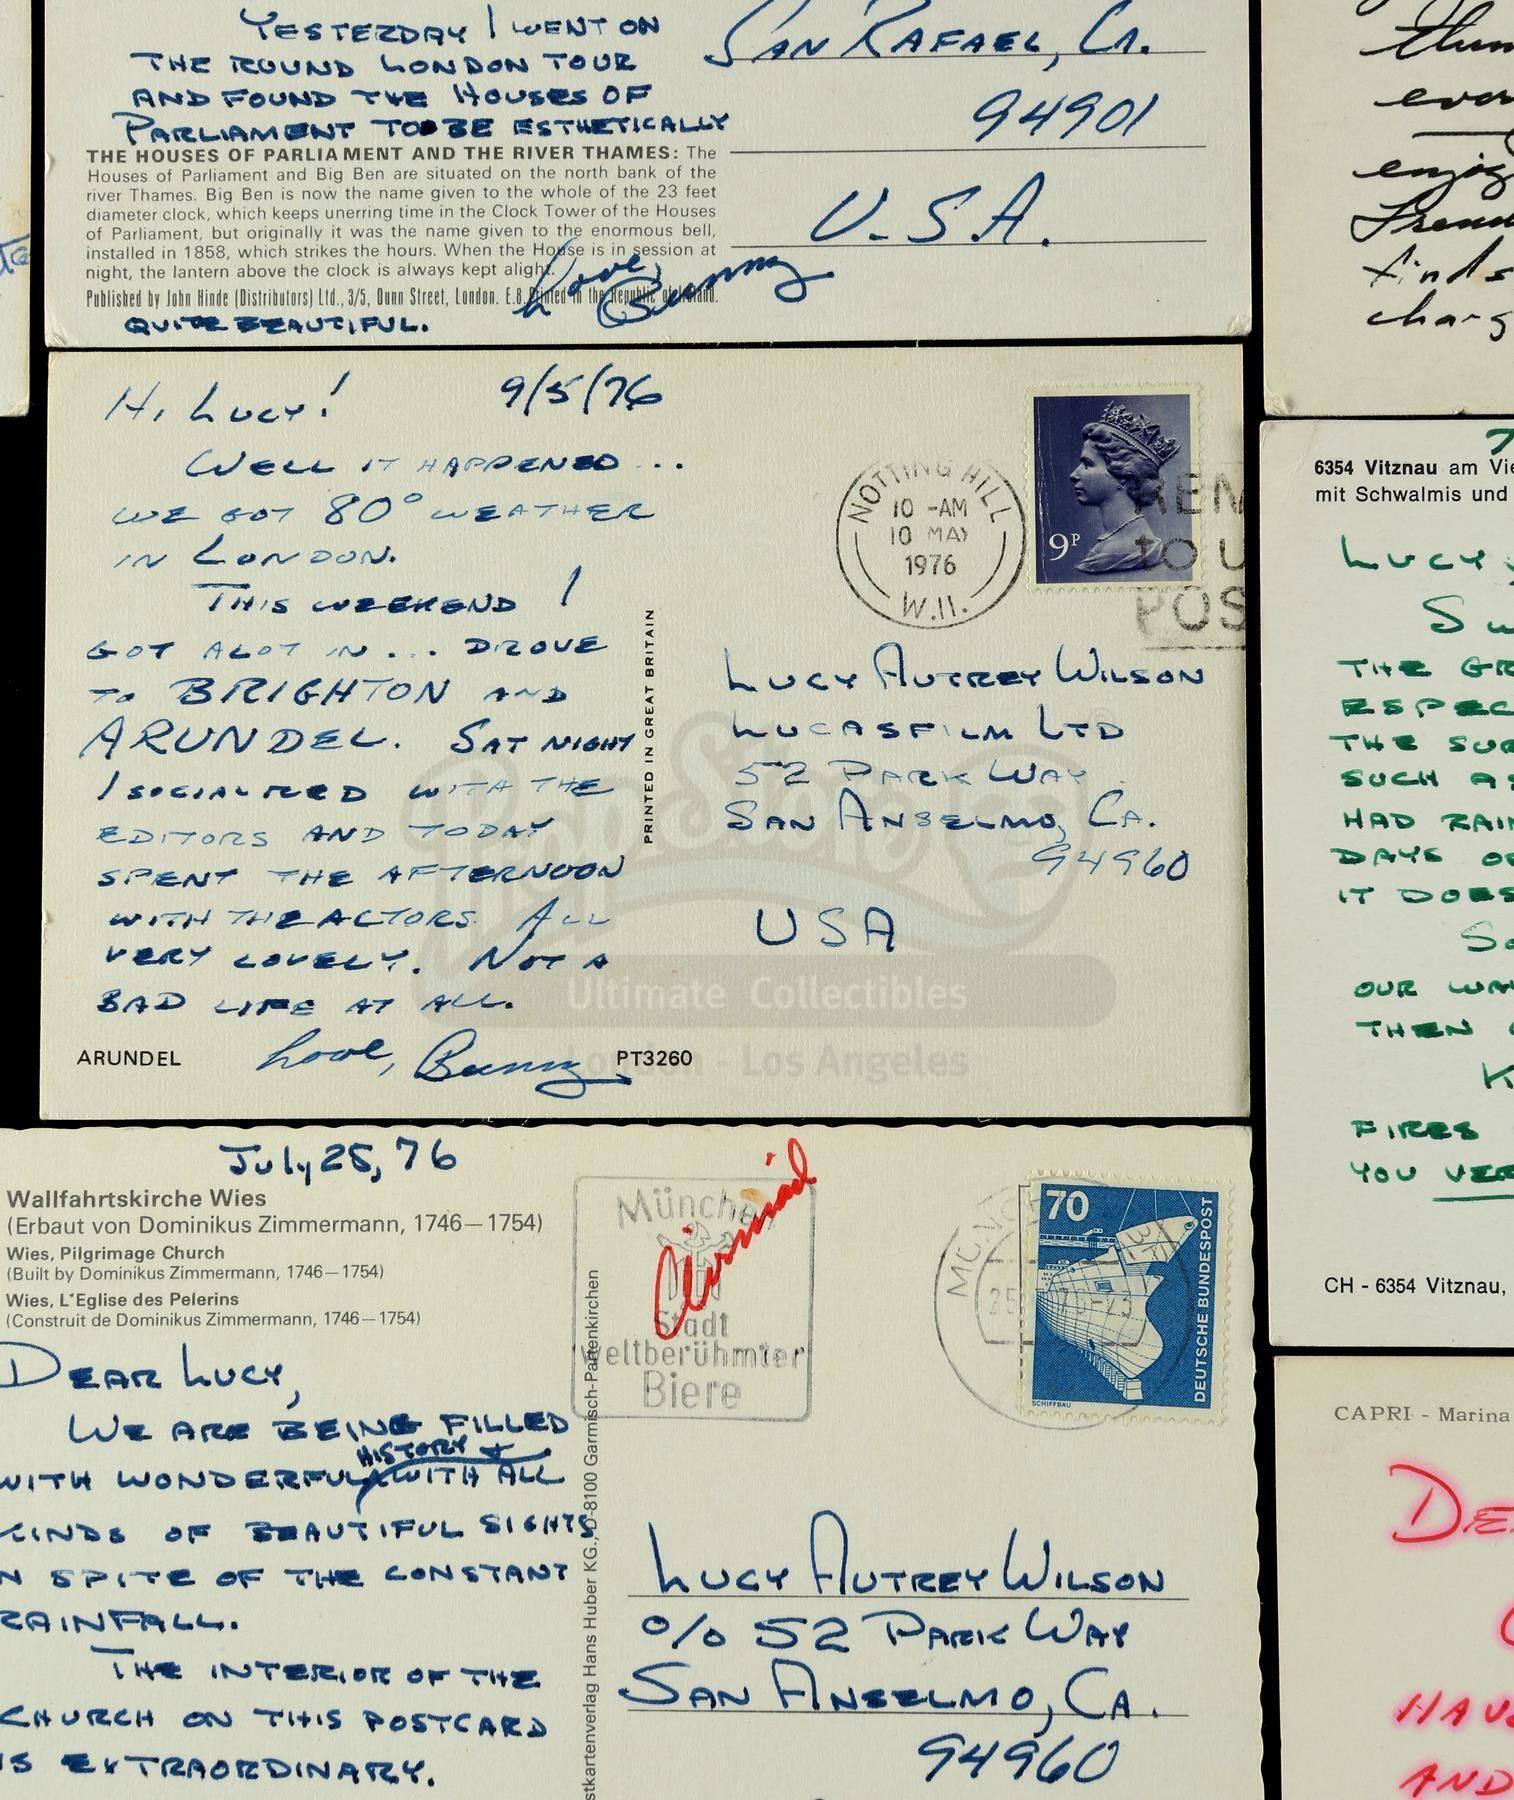 YESTERDAY I WENT ON
THE ROUND LONDON TOUR
AND FOUND THE HOUSES OF
PARLIAMENT TO BE ESTHETICALLY
THE HOUSES OF PARLIAMENT AND THE RIVER THAMES: The
Houses of Parliament and Big Ben are situated on the north bank of the
river Thames. Big Ben is now the name given to the whole of the 23 feet
diameter clock, which keeps unerring time in the Clock Tower of the Houses
of Parliament, but originally it was the name given to the enormous bell,
installed in 1858, which strikes the hours. When the House is in session at
night, the lantern above the clock is always kept alight.
Published by John Hinde (Distributors) Ltd., 3/5, Dunn Street, London. E.8. Printed in the Republic of Ireland.
QUITE BEAUTIFUL.
Love,
Bunny
SAN RAFAEL, CA.
94901
U.S.A.
HI LUCY! 9/5/76
WELL IT HAPPENED...
WE GOT 80° WEATHER
IN LONDON.
THIS WEEKEND I
GOT ALOT IN... DROVE
TO BRIGHTON AND
ARUNDEL. SAT NIGHT
I SOCIALIZED WITH THE
EDITORS AND TODAY
SPENT THE AFTERNOON
WITH THE ACTORS. ALL
VERY LOVELY. NOT A
BAD LIFE AT ALL.
Love, Bunny
ARUNDEL
PT3260
PRINTED IN GREAT BRITAIN
NOTTING HILL
10 -AM
10 MAY
1976
W.11.
9P
REM
TO U
POS
LUCY AUTREY WILSON
LUCASFILM LTD
52 PARK WAY
SAN ANSELMO, CA.
94960
USA
PropStore
Ultimate Collectibles
London - Los Angeles
July 25, 76
Wallfahrtskirche Wies
(Erbaut von Dominikus Zimmermann, 1746—1754)
Wies, Pilgrimage Church
(Built by Dominikus Zimmermann, 1746—1754)
Wies, L'Eglise des Pelerins
(Construit de Dominikus Zimmermann, 1746—1754)
DEAR LUCY,
WE ARE BEING FILLED
HISTORY +
WITH WONDERFUL WITH ALL
KINDS OF BEAUTIFUL SIGHTS
N SPITE OF THE CONSTANT
RAINFALL.
THE INTERIOR OF THE
CHURCH ON THIS POSTCARD
IS EXTRAORDINARY.
stkartenverlag Hans Huber KG., D-8100 Garmisch-Partenkirchen
München
Stadt
Weltberühmter
Biere
Airmail
70
DEUTSCHE BUNDESPOST
SCHIFFBAU
LUCY AUTREY WILSON
c/o 52 PARK WAY
SAN ANSELMO, CA.
94960
6354 Vitznau am Vie
mit Schwalmis und
LUCY,
SU
THE GR
ESPEC
THE SUR
SUCH AS
HAD RAIN
DAYS OF
IT DOES
SO
OUR WAY
THEN
K
FIRES
YOU VER
CH - 6354 Vitznau,
CAPRI - Marina
DE
HAV
AND
enjoy
finds
charg